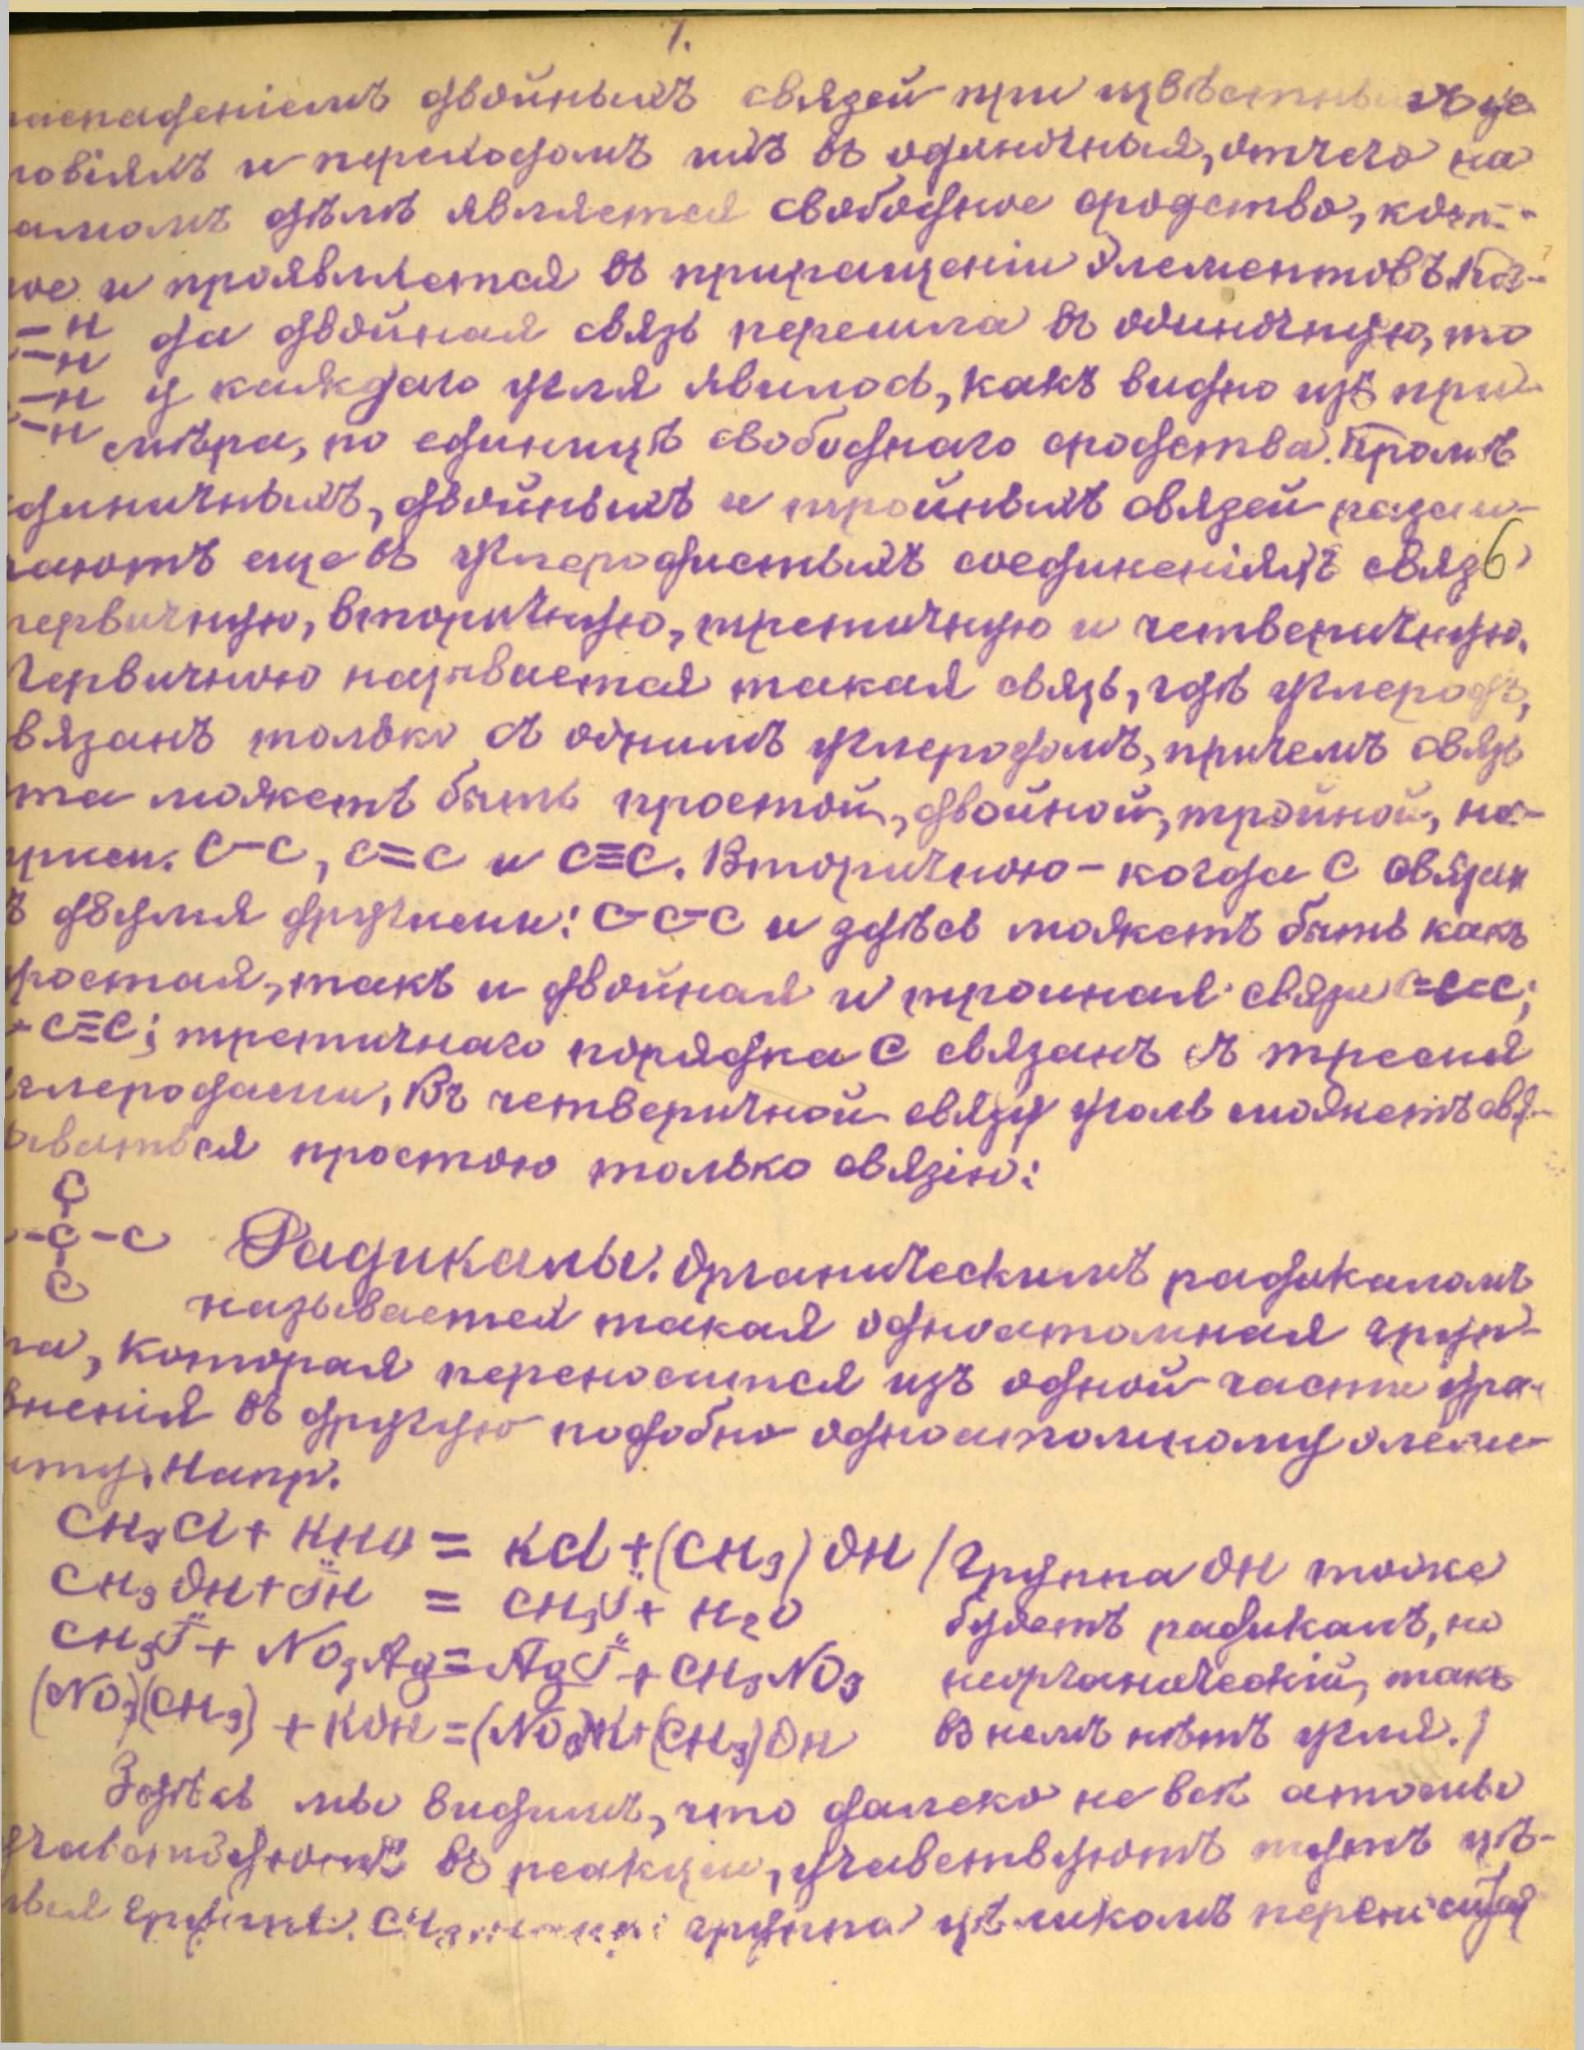 7.
распаденіемъ двойныхъ связей при извѣстныхъ ус
ловіяхъ и переходомъ ихъ въ одиночная, отчего на
самомъ дѣлѣ является свободное сродство, кото-
рое и проявляется въ приращеніи элементовъ. Ког-
-H да двойная связь перешла въ одиночную, то
-H
-H у каждаго угля явилось, какъ видно изъ при-
-H мѣра, по единицѣ свободнаго сродства. Кромѣ
единичныхъ, двойныхъ и тройныхъ связей разли-
чаютъ еще въ углеродистыхъ соединеніяхъ связь
первичную, вторичную, третичную и четверичную.
Первичною называется такая связь, гдѣ углеродъ,
связанъ только съ однимъ углеродомъ, причемъ связь
эта можетъ быть простой, двойной, тройной, на-
примѣръ. C-C, C=C и C≡C. Вторичною - когда C связан
ъ двумя другими: C-C-C и здѣсь можетъ быть какъ
простая, такъ и двойная и тройная связи C=C=C;
-C≡C; третичнаго порядка C связанъ съ тремя
углеродами, Въ четверичной связи уголь можетъ свя-
зываться простою только связію:
C
-C-C
C
Радикалы. Органическимъ радикаломъ
называется такая одноатомная груп-
па, которая переносится изъ одной части ура-
вненія въ другую подобно одноатомному элеме-
нту. Напр.
CH₃Cl + KHO = KCl + (CH₃)OH (Группа OH тоже
CH₃OH + JH = CH₃J + H₂O будетъ радикалъ, но
CH₃J + NO₃Ag = AgJ + CH₃NO₃ неорганическій, такъ
(NO₃)(CH₃) + KOH = (NO₃)K + (CH₃)OH въ немъ нѣтъ угля.)
Здѣсь мы видимъ, что далеко не всѣ атомы
участвуютъ въ реакціи, участвуютъ тутъ цѣ-
лыя группы. CH₃ группа цѣликомъ переносится